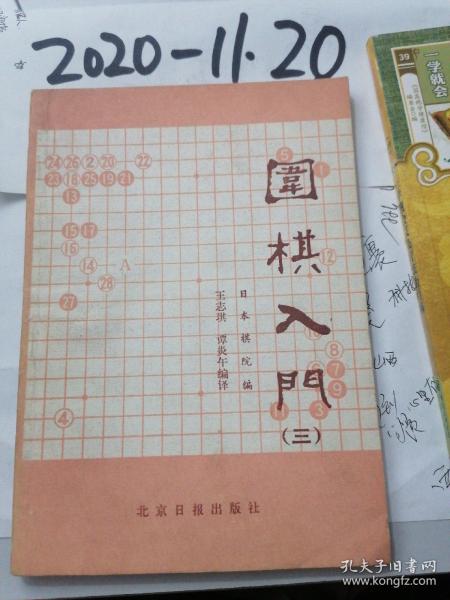 2020-11.20
圍棋入門
(三)
日本棋院编
王志琪 谭炎午编译
北京日报出版社
24 26 2 20 22
23 18 25 19 21
13
15 17
16
14 A
28
27
4
5
1
12
10
8
7
9
1
3
39
一学就会
山西
孔夫子旧书网
www.kongfz.com